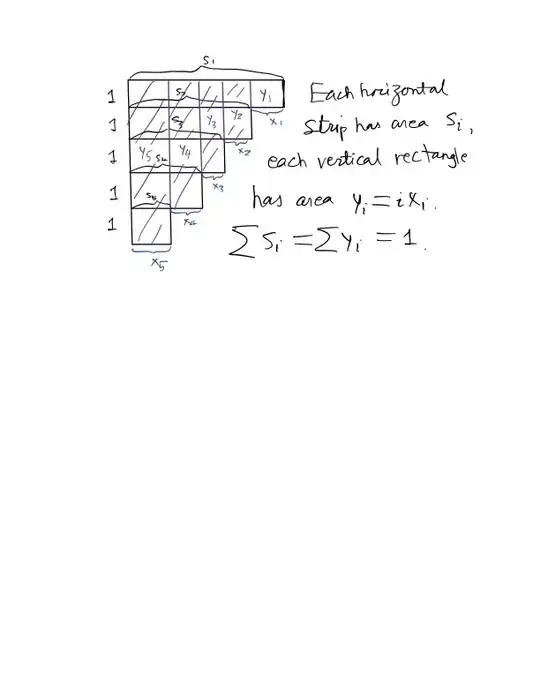 S1
1 Y1
S2
1 Y3 Y2 X1
S3
1 Y5 Y4 X2
S4
1 X3
S5
1 X4
X5
Each horizontal
strip has area Si,
each vertical rectangle
has area yi = i xi.
∑ Si = ∑ yi = 1.